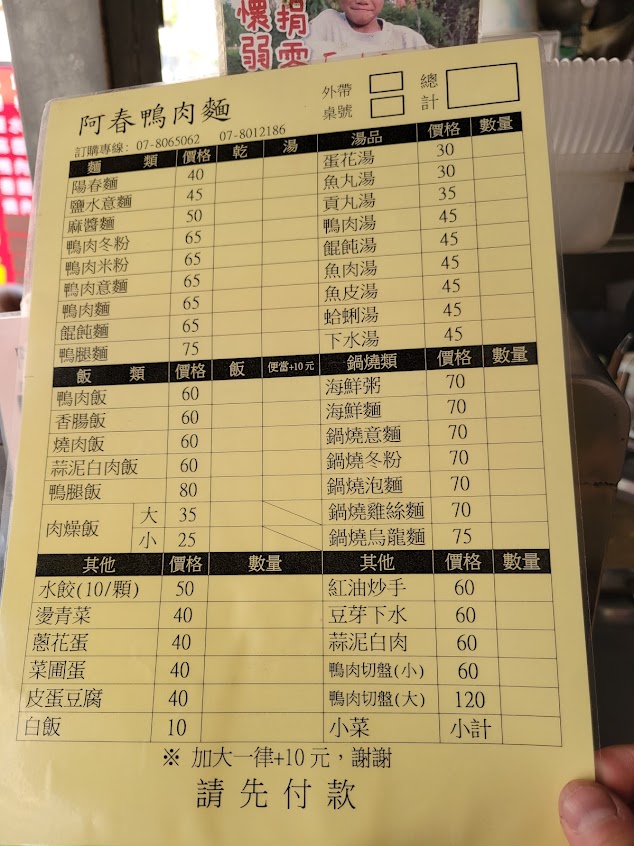 懷弱
捐零
阿春鴨肉麵
外帶
桌號
總計
訂購專線: 07-8065062 07-8012186
麵 類 價格 乾 湯
陽春麵 40
鹽水意麵 45
麻醬麵 50
鴨肉冬粉 65
鴨肉米粉 65
鴨肉意麵 65
鴨肉麵 65
餛飩麵 65
鴨腿麵 75
湯品 價格 數量
蛋花湯 30
魚丸湯 30
貢丸湯 35
鴨肉湯 45
餛飩湯 45
魚肉湯 45
魚皮湯 45
蛤蜊湯 45
下水湯 45
飯 類 價格 飯 便當+10元
鴨肉飯 60
香腸飯 60
燒肉飯 60
蒜泥白肉飯 60
鴨腿飯 80
肉燥飯 大 35
小 25
鍋燒類 價格 數量
海鮮粥 70
海鮮麵 70
鍋燒意麵 70
鍋燒冬粉 70
鍋燒泡麵 70
鍋燒雞絲麵 70
鍋燒烏龍麵 75
其他 價格 數量
水餃(10/顆) 50
燙青菜 40
蔥花蛋 40
菜圃蛋 40
皮蛋豆腐 40
白飯 10
其他 價格 數量
紅油炒手 60
豆芽下水 60
蒜泥白肉 60
鴨肉切盤(小) 60
鴨肉切盤(大) 120
小菜 小計
※ 加大一律+10元，謝謝
請先付款